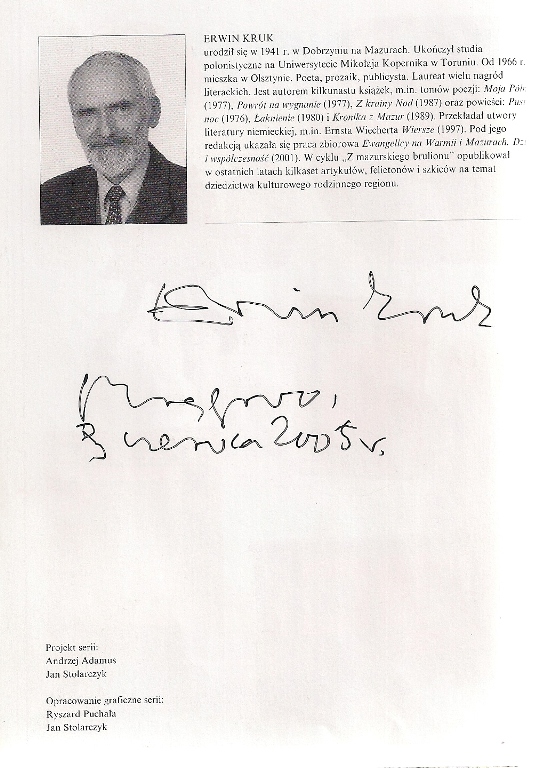 ERWIN KRUK
urodził się w 1941 r. w Dobrzyniu na Mazurach. Ukończył studia
polonistyczne na Uniwersytecie Mikołaja Kopernika w Toruniu. Od 1966 r.
mieszka w Olsztynie. Poeta, prozaik, publicysta. Laureat wielu nagród
literackich. Jest autorem kilkunastu książek, m.in. tomów poezji: Moja
(1977), Powrót na wygnanie (1977), Z krainy Nod (1987) oraz powieści:
noc (1976), Łaknienie (1980) i Kronika z Mazur (1989). Przekładał utwory
literatury niemieckiej, m.in. Ernsta Wiecherta Wiersze (1997). Pod jego
redakcją ukazała się praca zbiorowa Ewangelicy na Warmii i Mazurach.
i współczesność (2001). W cyklu „Z mazurskiego brulionu” opublikował
w ostatnich latach kilkaset artykułów, felietonów i szkiców na temat
dziedzictwa kulturowego rodzinnego regionu.
Erwin Kruk
czerwca 2005 r.
Projekt serii:
Andrzej Adamus
Jan Stolarczyk
Opracowanie graficzne serii:
Ryszard Puchała
Jan Stolarczyk